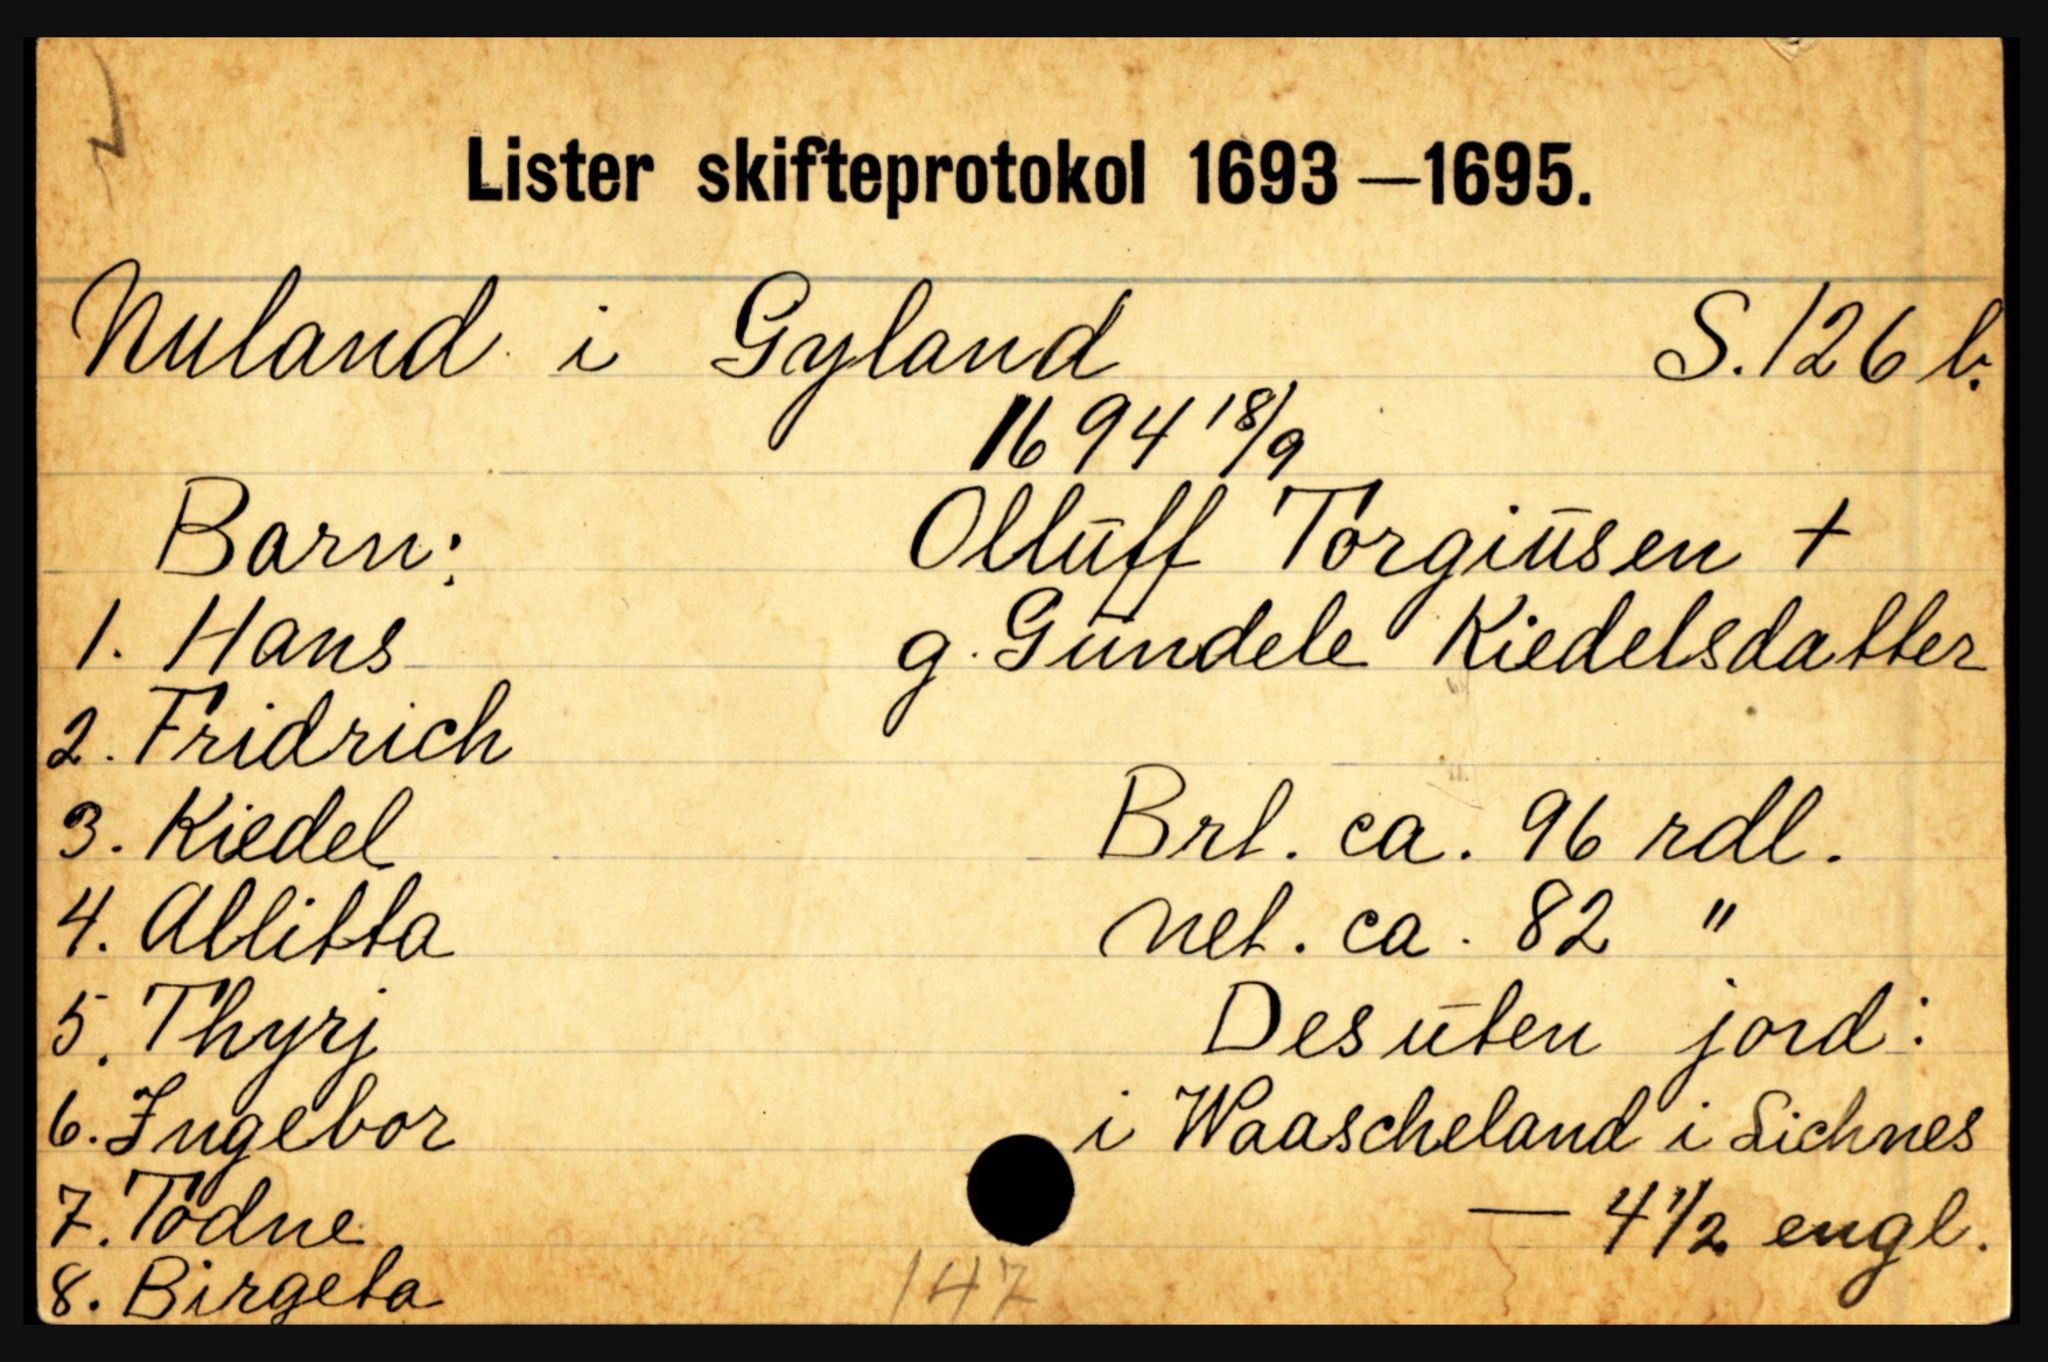 Lister skifteprotokol 1693—1695.
Nuland i Gyland S. 126 b.
1694 18/9
Barn: Olluff Torgiusen +
1. Hans g. Gundele Kiedelsdatter
2. Fridrich
3. Kiedel Brt. ca. 96 rdl.
4. Allitta net. ca. 82 "
5. Thyrj Desuten jord:
6. Ingebor i Waascheland i Sichnes
7. Todne — 4 1/2 engl.
8. Birgeta
147